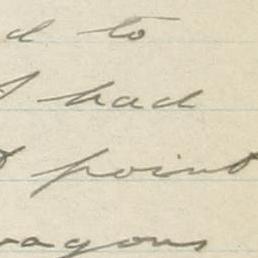 d to
I had
t point
wagons